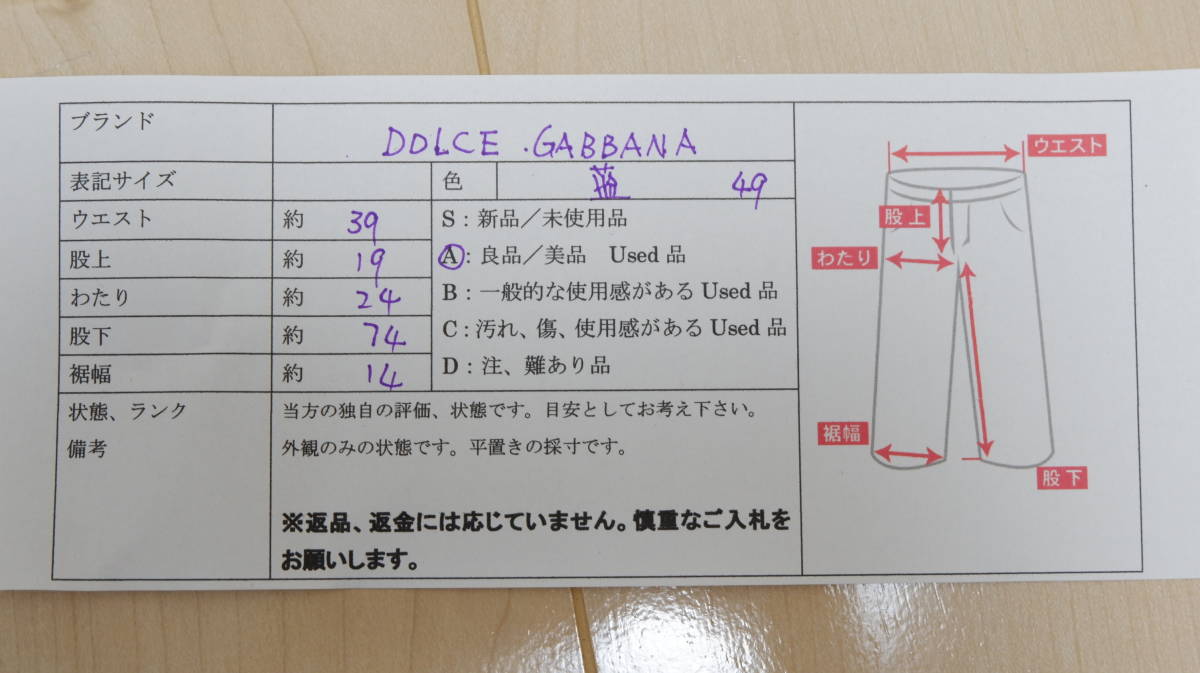 ブランド DOLCE . GABBANA
表記サイズ 色 藍 49
ウエスト 約 39 S：新品／未使用品
股上 約 19 A：良品／美品 Used 品
わたり 約 24 B：一般的な使用感がある Used 品
股下 約 74 C：汚れ、傷、使用感がある Used 品
裾幅 約 14 D：注、難あり品
状態、ランク 当方の独自の評価、状態です。目安としてお考え下さい。
備考 外観のみの状態です。平置きの採寸です。
※返品、返金には応じていません。慎重なご入札を
お願いします。
ウエスト
股上
わたり
裾幅
股下